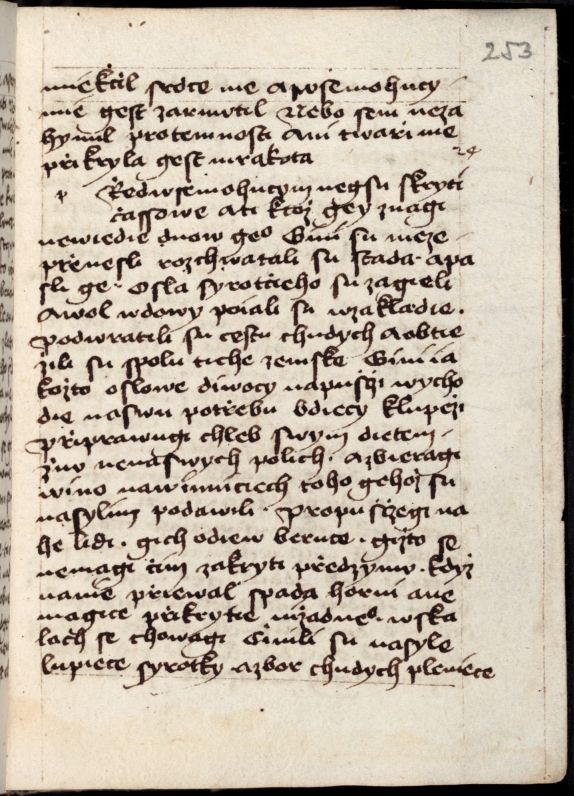 253
miekčil srdce me a wssemohucy
mie gest zarmutil Nebo sem neza
hynul protemnosti Ani twarzi me
přikryla gest mrakota
24
Red wsemohucym negsu skryti
čassowe a ti ktoz gey znagi
newiedie dnow geo Gini su meze
přenesli rozchwatali su stada apa
sli ge Osla syrotčieho su zagieli
awol wdowy poiali su wzakladie
podwratili su cestu chudych a obtie
žili su spolu tiche zemske Gini ia
kožto oslowe diwocy napušči wycho
die naswu potřebu bdiecy klupeži
připrawugi chleb swym dietem
žnu nenaswych polich azbieragi
wino nawinniciech toho gehož su
nasylim podawili Propusczegi na
he lidi gich odiew beruce gižto se
nemagi čim zakryti předzymu když
namie priewal spada horni ane
magice přikrytie nižadneo wska
lach se chowagi Ginili su nasyle
lupiece syrotky azbor chudych pleniece